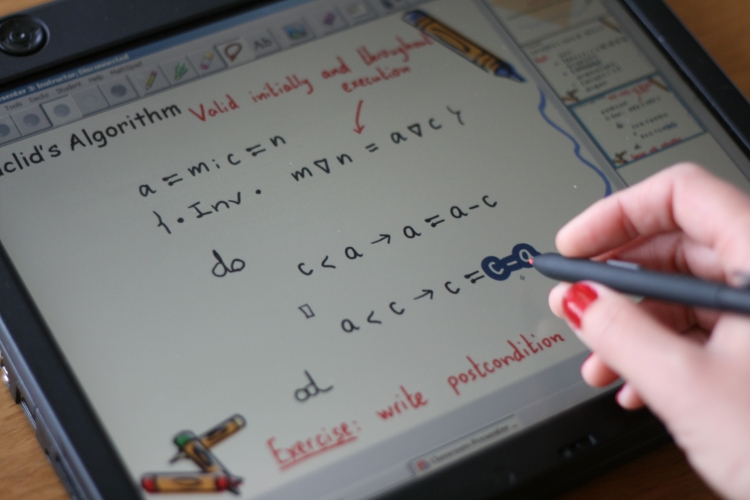 Euclid's Algorithm
Valid initially and throughout
execution
a = m; c = n
{• Inv. m ∇ n = a ∇ c }
do c < a → a = a - c
▯ a < c → c = c - a
od
Exercise: write postcondition